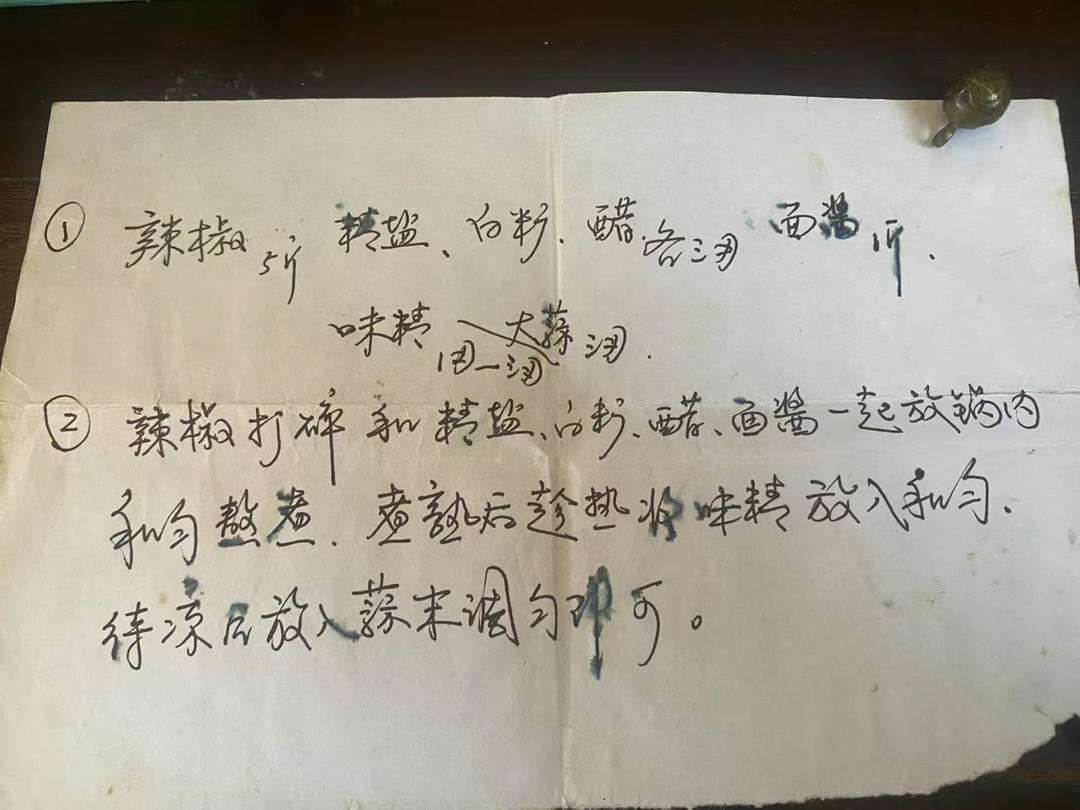 ① 辣椒5斤 精盐、白粉、醋各三两 面酱1斤.
味精1两—三两 大蒜三两.
② 辣椒打碎和精盐、白粉、醋、面酱一起放锅内
和匀熬煮.煮熟后趁热将味精放入和匀.
待凉后放入蒜末调匀即可。